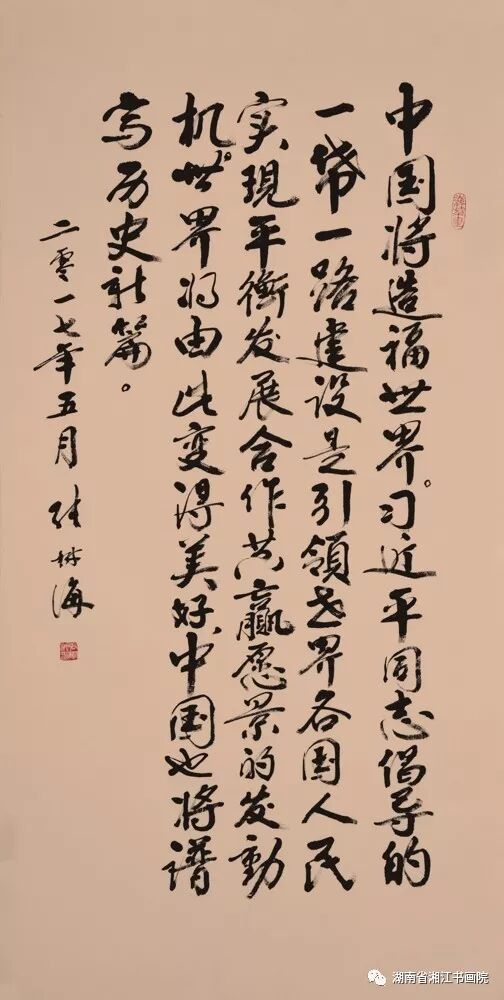 中国将造福世界。习近平同志倡导的
一带一路建设是引领世界各国人民
实現平衡发展合作共赢愿景的发動
机。世界将由此变得美好,中国也将谱
写历史新篇。
二零一七年五月 海
湖南省湘江书画院